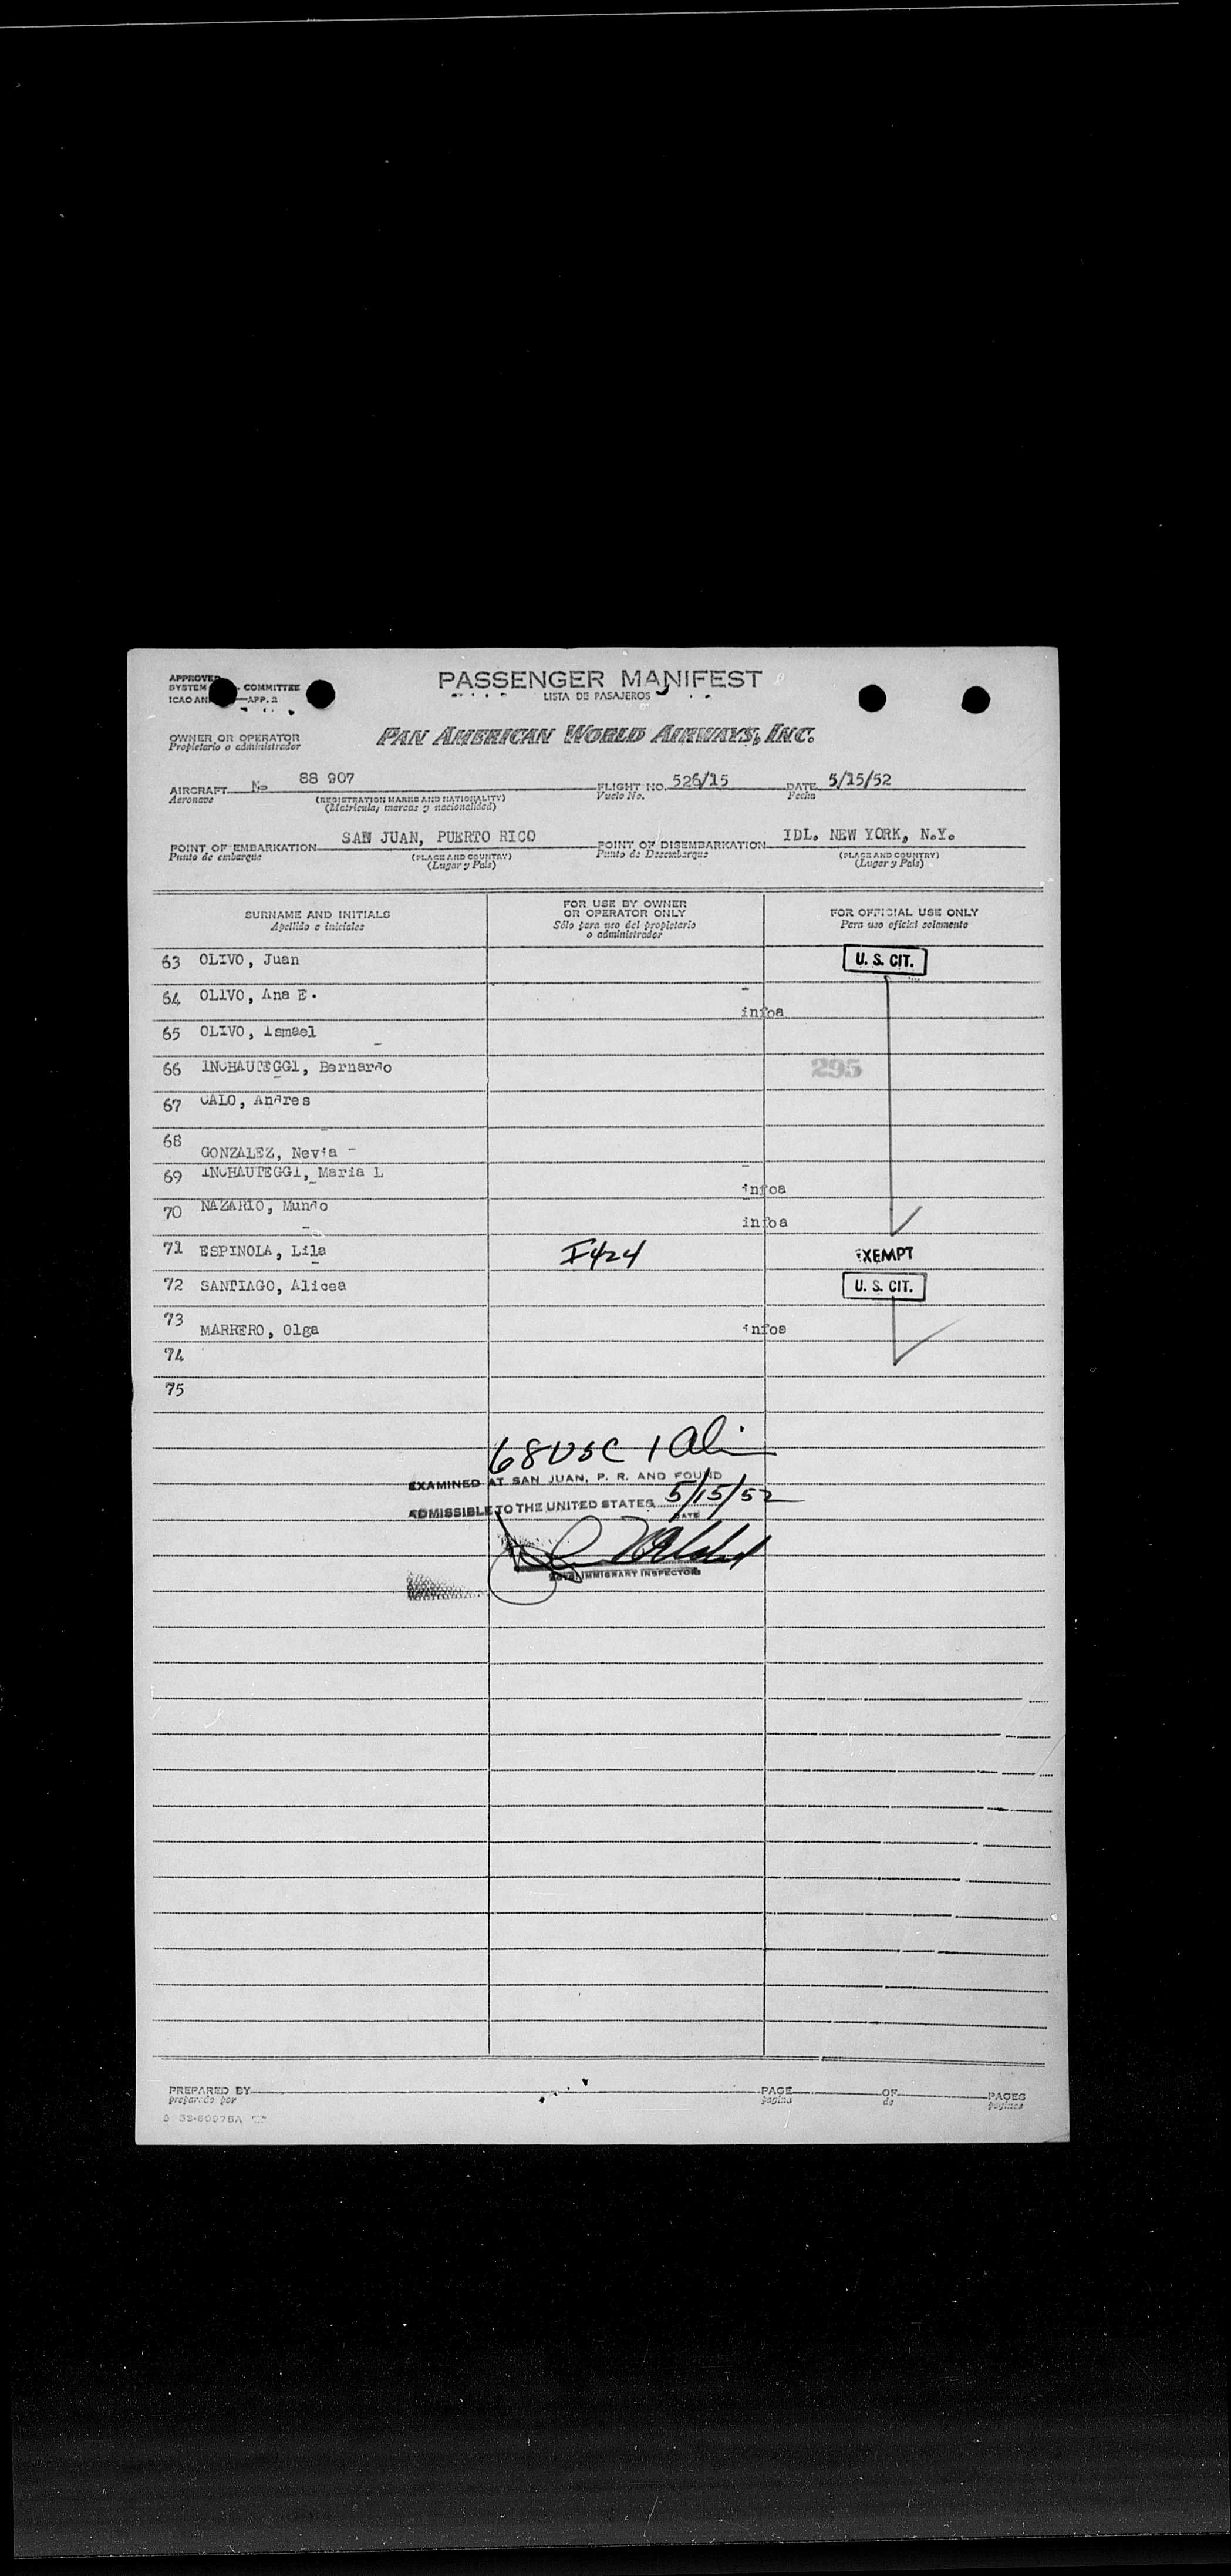 PASSENGER MANIFEST
LISTA DE PASAJEROS
APPROVED
SYSTEM COMMITTEE
ICAO AN —APP. 2
OWNER OR OPERATOR
Propietario o administrador
PAN AMERICAN WORLD AIRWAYS, INC.
AIRCRAFT No 88 907 FLIGHT NO. 526/15 DATE 5/15/52
Aeronave (REGISTRATION MARKS AND NATIONALITY) Vuelo No. Fecha
(Matricula, marcas y nacionalidad)
POINT OF EMBARKATION SAN JUAN, PUERTO RICO POINT OF DISEMBARKATION IDL. NEW YORK, N.Y.
Punto de embarque (PLACE AND COUNTRY) Punto de Desembarque (PLACE AND COUNTRY)
(Lugar y Pais) (Lugar y Pais)
SURNAME AND INITIALS FOR USE BY OWNER OR OPERATOR ONLY FOR OFFICIAL USE ONLY
Apellido e iniciales Sólo para uso del propietario o administrador Para uso oficial solamente
63 OLIVO, Juan U. S. CIT.
64 OLIVO, Ana E. infoa
65 OLIVO, Ismael
66 INCHAUTEGGI, Bernardo 295
67 CALO, Andres
68 GONZALEZ, Nevia
69 INCHAUTEGGI, Maria L infoa
70 NAZARIO, Mundo infoa
71 ESPINOLA, Lila I424 EXEMPT
72 SANTIAGO, Alicea U. S. CIT.
73 MARRERO, Olga infoa
74
75
68 USC 1 Ali
EXAMINED AT SAN JUAN, P. R. AND FOUND
ADMISSIBLE TO THE UNITED STATES 5/15/52
DATE
IMMIGRANT INSPECTOR
PREPARED BY PAGE OF PAGES
preparado por pagina de paginas